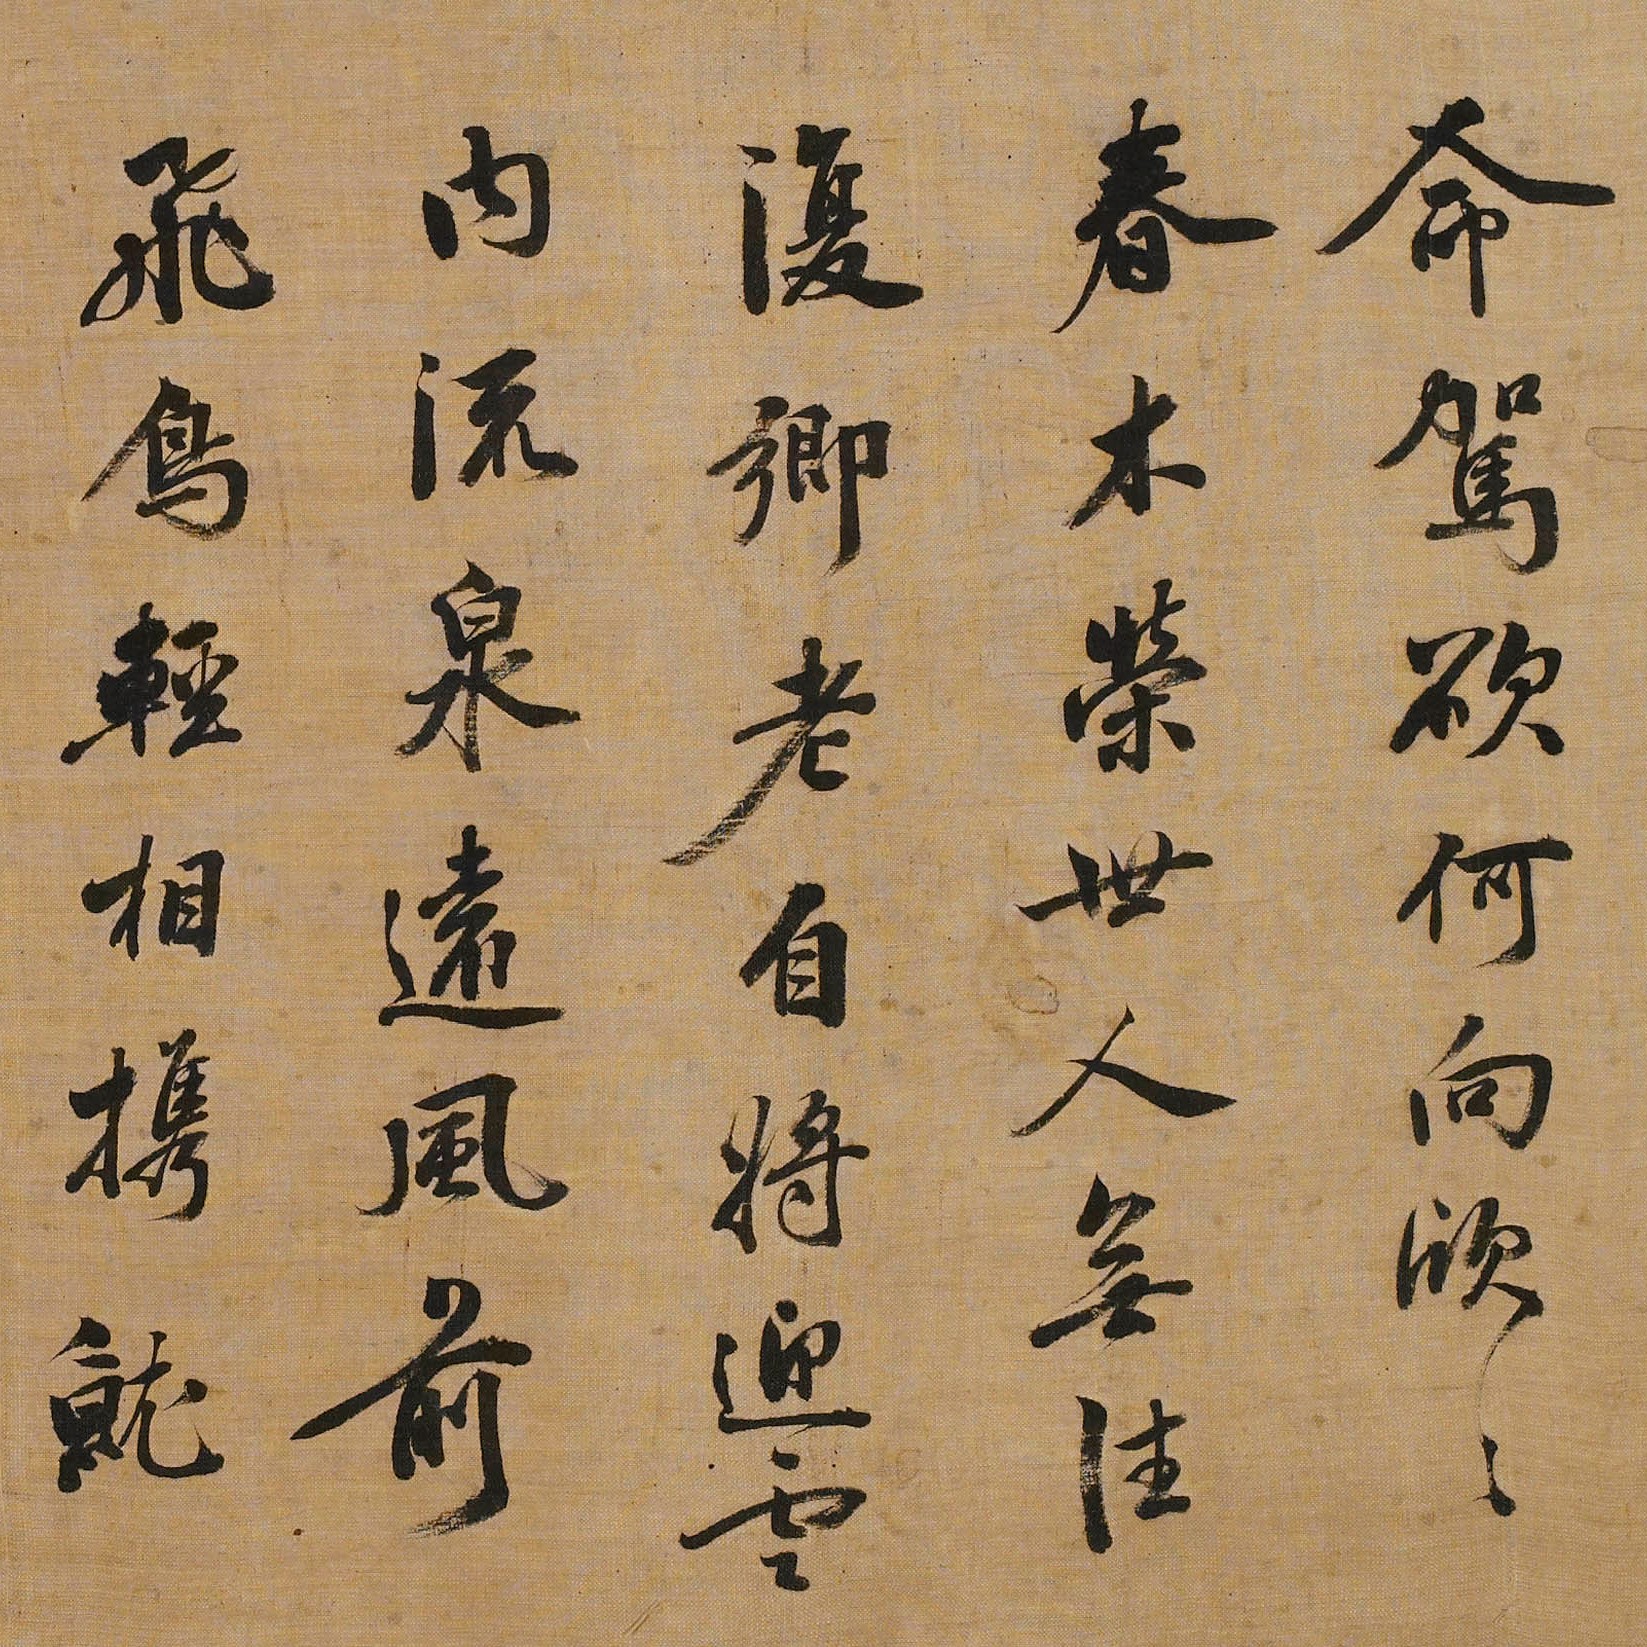 命駕欲何向欣〻
春木榮世人無往
復鄉老自將迎雲
內流泉遠風前
飛鳥輕相攜就